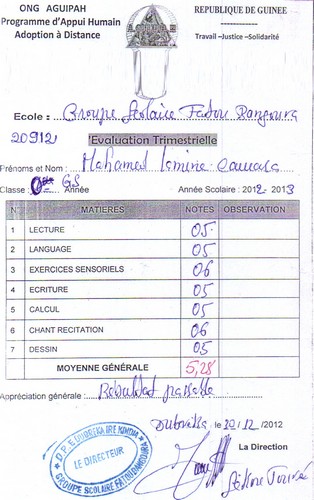 ONG AGUIPAH
Programme d'Appui Humain
Adoption à Distance
REPUBLIQUE DE GUINEE
Travail –Justice –Solidarité
Ecole : Groupe Scolaire Fatou Bangoura
20912
Evaluation Trimestrielle
Prénoms et Nom : Mohamed Lamine Camara
Classe : GS Année Année Scolaire : 2012- 2013
N° MATIERES NOTES OBSERVATION
1 LECTURE 05
2 LANGUAGE 05
3 EXERCICES SENSORIELS 06
4 ECRITURE 05
5 CALCUL 05
6 CHANT RECITATION 06
7 DESSIN 05
MOYENNE GÉNÉRALE 5,28
Appréciation générale : Résultat passable
Dubréka, le 30/12/2012
La Direction
LE DIRECTEUR
GROUPE SCOLAIRE FATOU BANGOURA